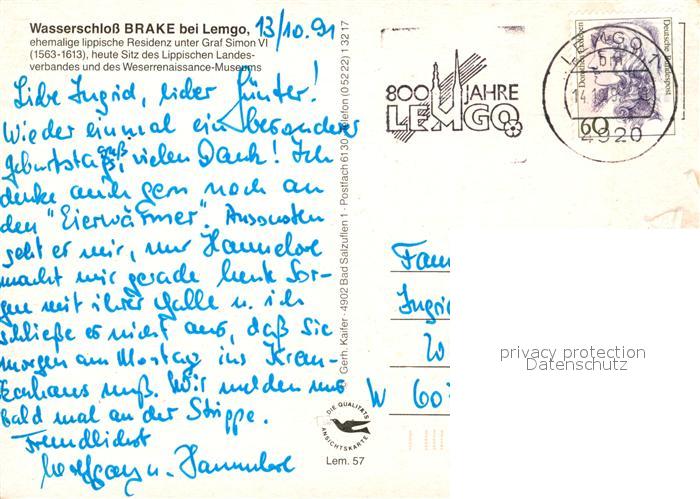 Wasserschloß BRAKE bei Lemgo, 13/10.91
ehemalige lippische Residenz unter Graf Simon VI
(1563-1613), heute Sitz des Lippischen Landes-
verbandes und des Weserrenaissance-Museums
Liebe Ingrid, lieber Günter!
Wieder einmal ein besonderer
Geburtstagsgruß, vielen Dank! Ich
denke auch gern noch an
den "Eierwärmer". Ansonsten
geht es mir, nur Hannelore
macht mir gerade heute Sor-
gen mit ihrer Galle u. ich
schließe es nicht aus, daß sie
morgen am Montag ins Kran-
kenhaus muß. Wir melden uns
bald mal an der Strippe.
Freundlichst
Wolfgang u. Hannelore
© Gerh. Kaifer · 4902 Bad Salzuflen 1 · Postfach 6130 · Telefon (0 52 22) 1 32 17
DIE QUALITÄTS
ANSICHTSKARTE
Lem. 57
800 JAHRE
LEMGO
LEMGO 1
4920
Deutsche Bundespost
60
Fam
Ingrid
W 60
privacy protection
Datenschutz